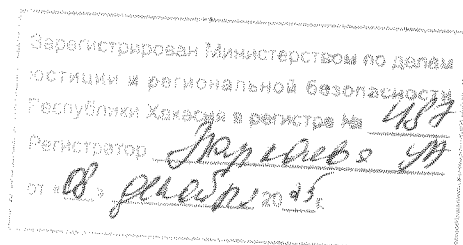 Зарегистрирован Министерством по делам
юстиции и региональной безопасности
Республики Хакасия в регистре № 487
Регистратор
от «08» декабря 2015 г.